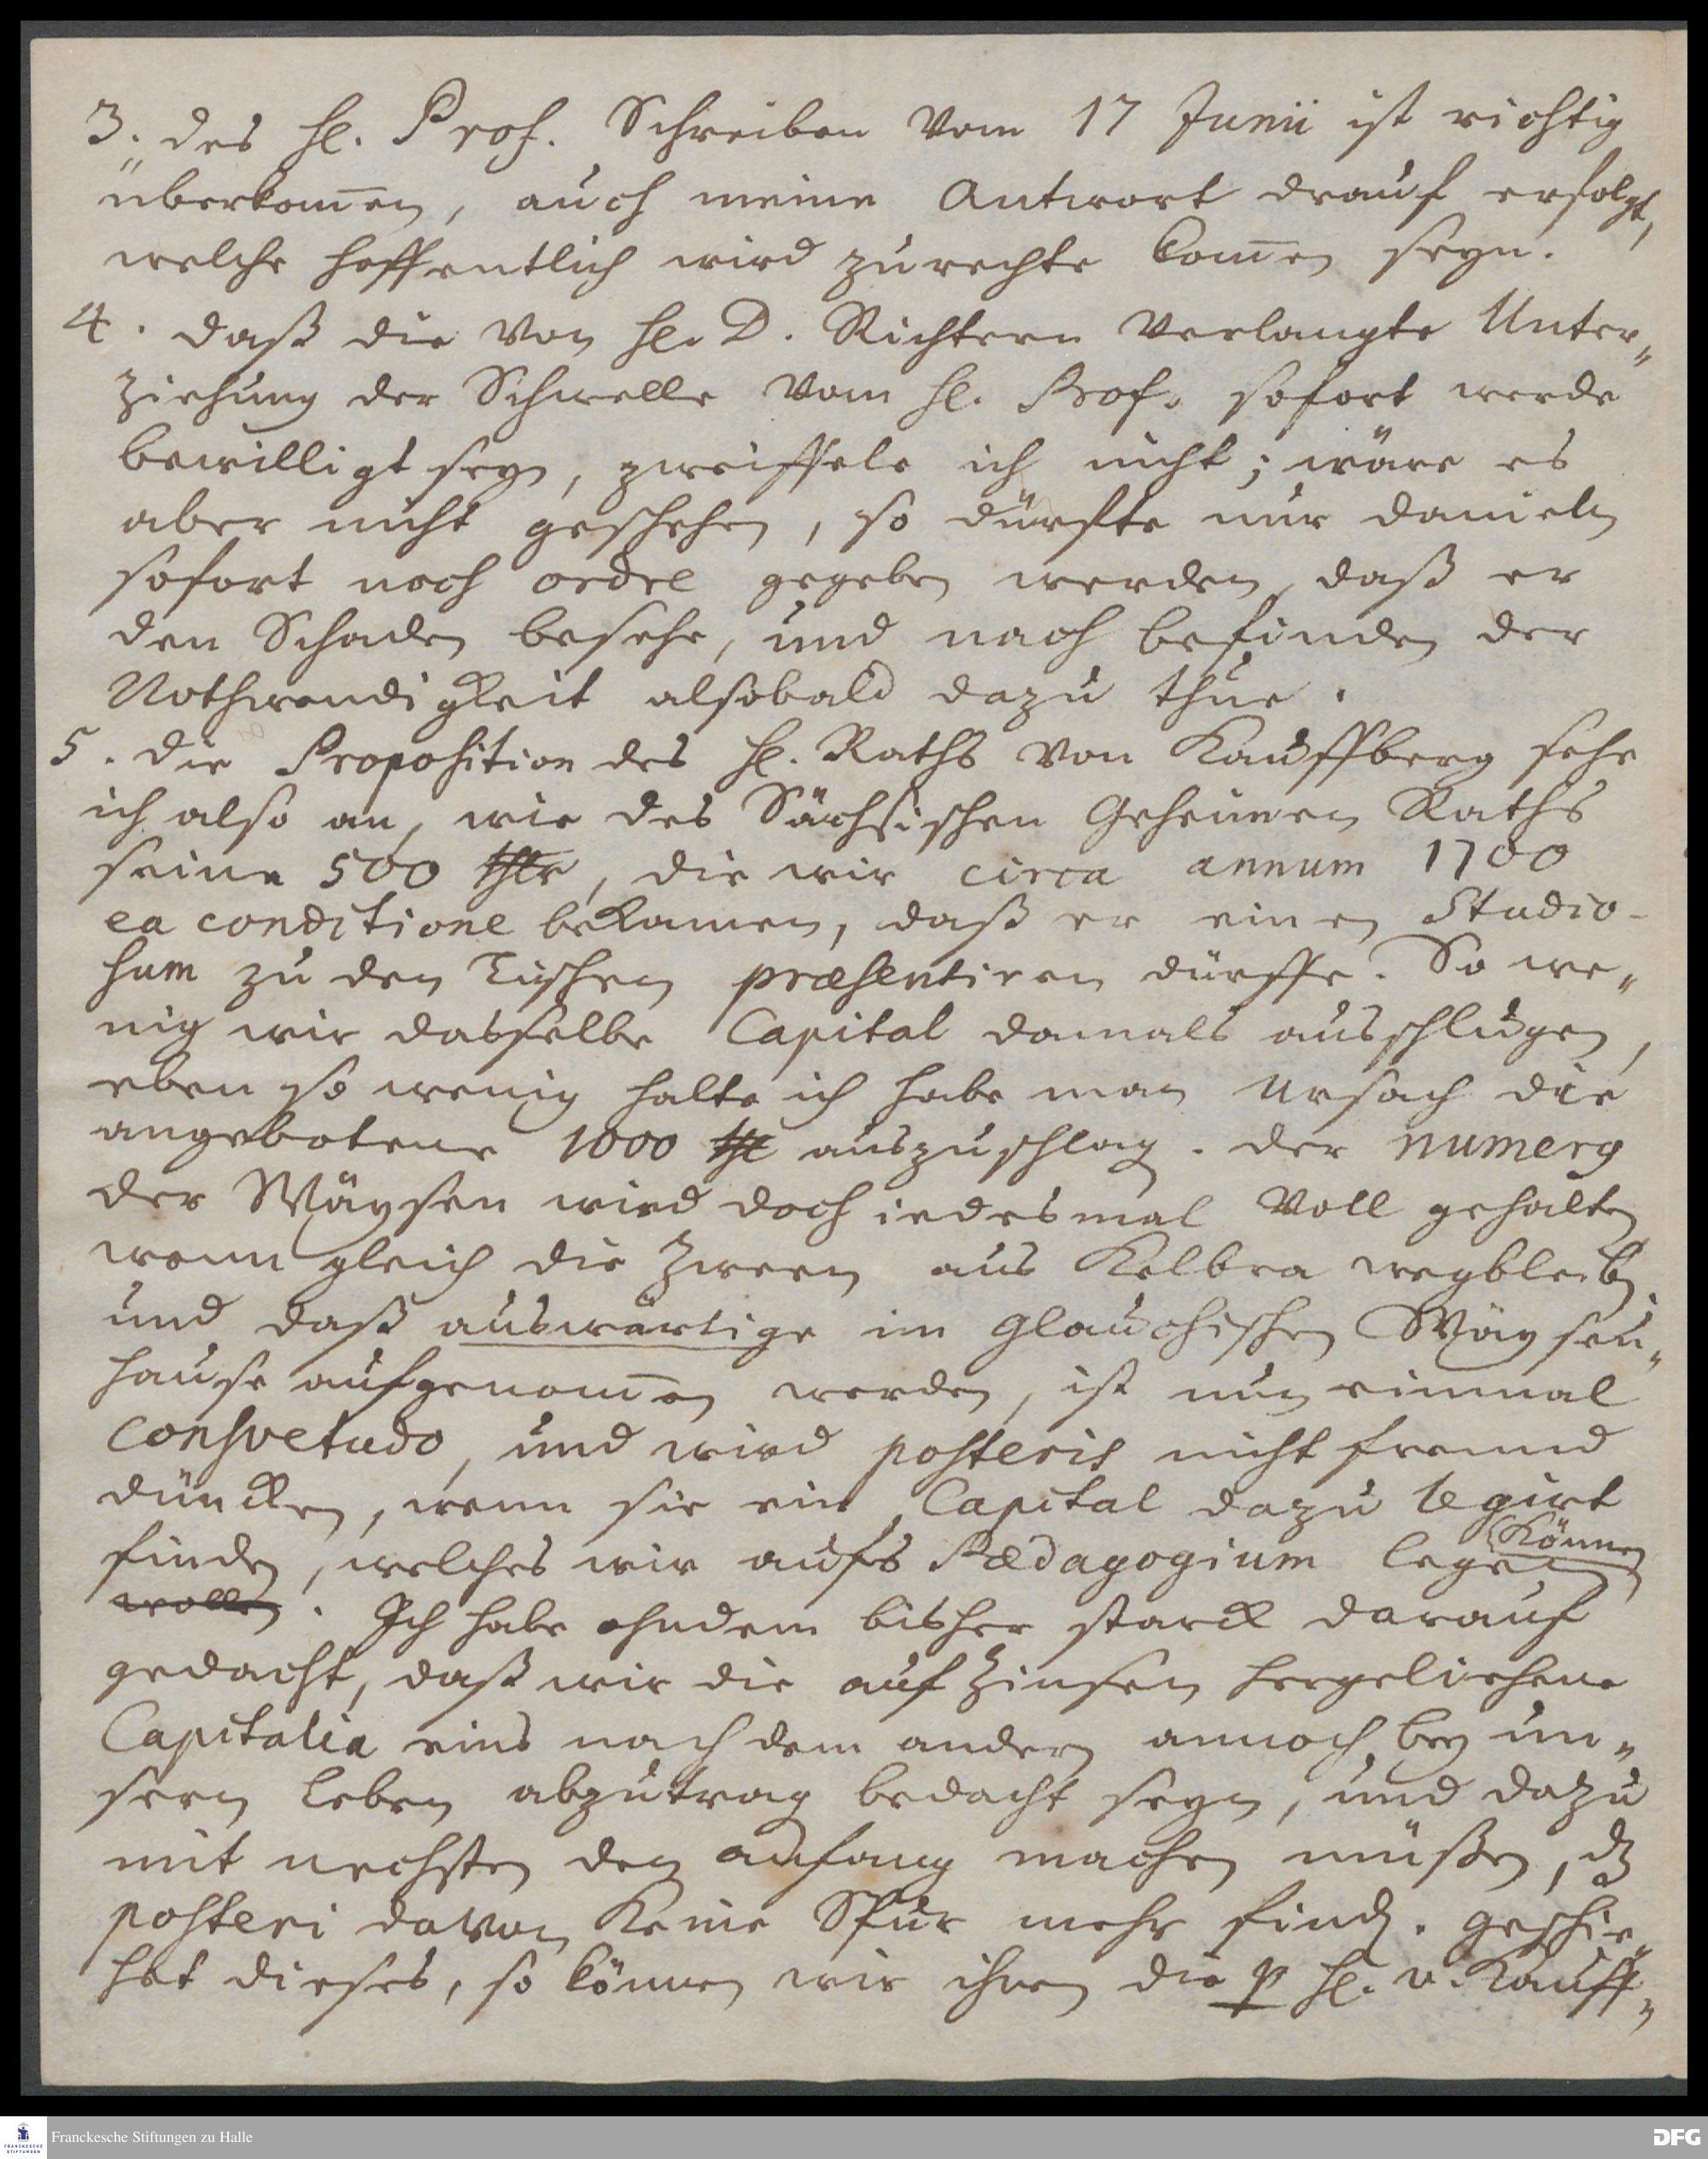 3. des H. Prof. Schreiben vom 17 Junii ist richtig
überkom̅en, auch meine Antwort drauf erfolgt,
welche hoffentlich wird zurechte kom̅en seyn.
4. daß die von H. D. Richtern verlangte Unter„
ziehung der Schwelle vom H. Prof. sofort werde
bewilligt seyn, zweiffele ich nicht; wäre es
aber nicht geschehen, so dürfte nur danieln
sofort noch ordre gegeben werden, daß er
den Schaden besehe, und nach befinden der
Nothwendigkeit alsobald dazu thue.
5. die Proposition des H. Raths von Kauffberg sehe
ich also an, wie des Sächsischen Geheimen Raths
seine 500 thlr, die wir circa annum 1700
ea conditione bekamen, daß er einen Studio-
sum zu den Tischen præsentiren dürffe. So we„
nig wir dasselbe Capital damals ausschlugen,
eben so wenig halte ich habe man Ursach die
angebotene 1000 thl auszuschlag. der numerg
der Wäysen wird doch iedesmal voll gehalten
wenn gleich die Zween aus Kelbra wegbleiben
und daß auswärtige im Glauchischen Wäysen„
hause aufgenom̅en werden, ist nun einmal
consvetudo, und wird posteris nicht fremd
düncken, wenn sie ein Capital dazu legirt
finden, welches wir aufs Pædagogium legen können
wollen. Ich habe ohndem bisher starck darauf
gedacht, daß wir die auf Zinsen hergeliehene
Capitalia eins nach dem andern annoch bey un„
sern Leben abzutrag bedacht seyn, und dazu
mit nechsten den anfang machen müßen, dz
posteri davon keine Spur mehr find. geschie„
het dieses, so können wir ihnen die p H. v. Kauff„
Franckesche Stiftungen zu Halle
FRANCKESCHE STIFTUNGEN
DFG